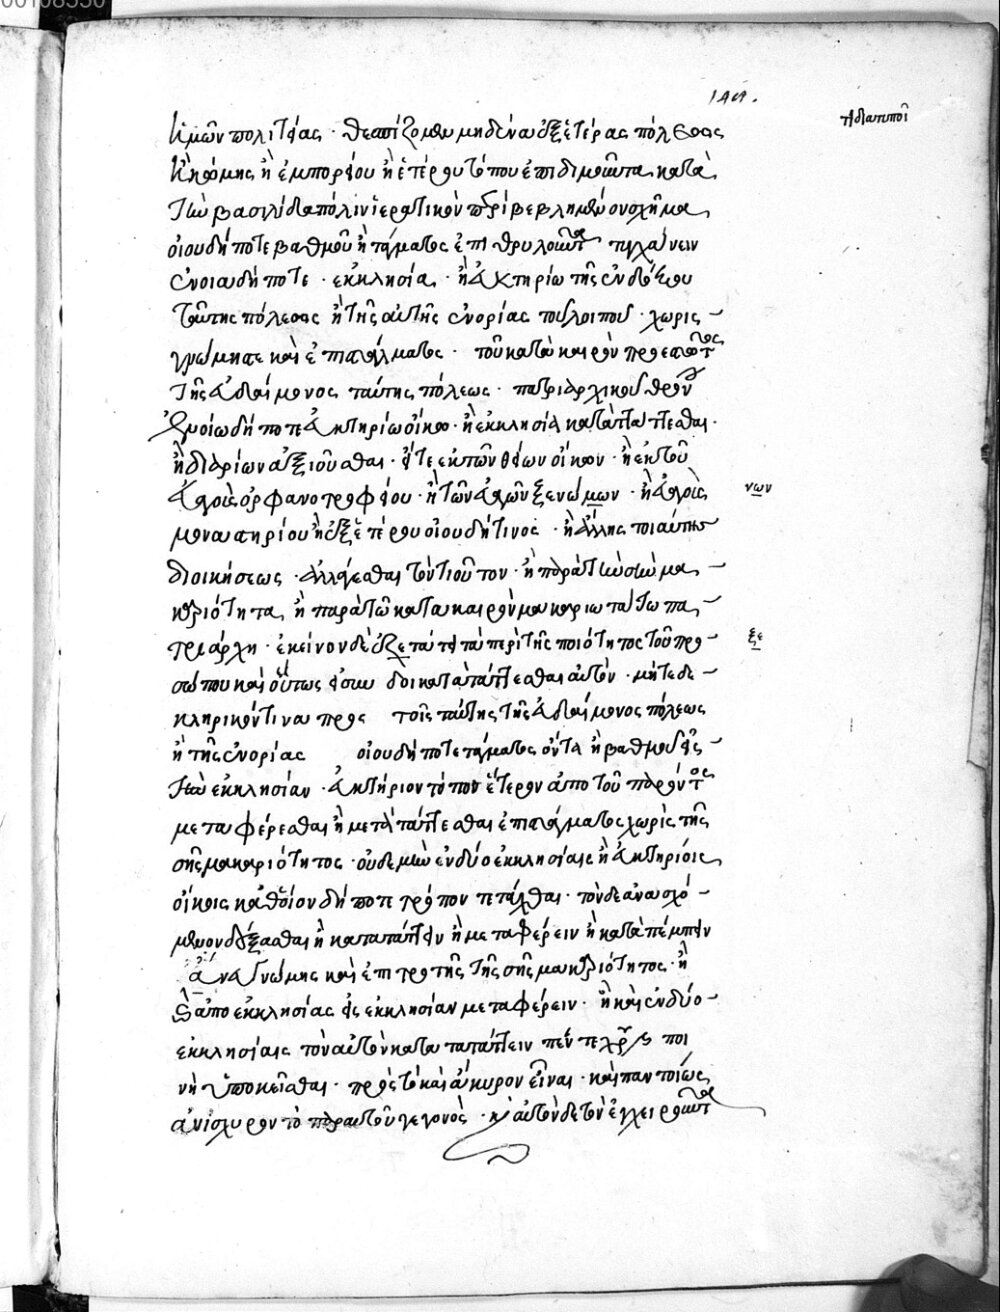 ἡμῶν πολιτείας · θεσπίζομεν μηδένα ἐξ ἑτέρας πόλεως
ἢ κώμης ἢ ἐμπορίου ἢ ἑτέρου τόπου ἐπιδημοῦντα κατὰ
τὴν βασιλίδα πόλιν ἱερατικὸν περιβεβλημένον σχῆμα
οἱουδήποτε βαθμοῦ ἢ τάγματος τυγχάνειν
ἐν οιαδήποτε · ἐκκλησία · ἢ εὐκτηρίω τῆς ἐνδόξου
ταύτης πόλεως ἢ τῆς αὐτῆς ἐνορίας τοῦ λοιποῦ · χωρὶς
γνώμης τε καὶ ἐπιτάγματος · τοῦ κατὰ καιρὸν προεστῶτος
τῆς εὐδαίμονος ταύτης πόλεως · πατριαρχικοῦ θρόνου
οἱωδήποτε εὐκτηρίω οἴκω · ἢ ἐκκλησία κατατάττεσθαι ·
ἢ διαρίων ἀξιοῦσθαι · εἴτε ἐκ τῶν θείων οἴκων · ἢ ἐκ τοῦ
εὐαγοῦς ὀρφανοτροφείου · ἢ τῶν εὐαγῶν ξενώμων · ἢ εὐαγοῦς
νων
μοναστηρίου ἢ ἐξ ἑτέρου οἱουδήτινος · ἢ ἄλλης τοιαύτης
διοικήσεως · ἀλλ' ἔσεσθαι τὸν τοιοῦτον · ἢ παρὰ τὴν σὴν μα
καριότητα ἢ παρὰ τῶ κατὰ καιρὸν μακαριωτάτω πα
τριάρχη · ἐκεῖνον δὲ ἐζεταστέ τὰ περὶ τῆς ποιότητος τοῦ προ
ξε
σώπου καὶ οὕτως κατατάττεσθαι αὐτόν · μήτε δὲ
κληρικόν τινα πρὸς τοῖς ταύτης τῆς εὐδαίμονος πόλεως
ἢ τῆς ἐνορίας οἱουδήποτε τάγματος ὄντα ἢ βαθμοῦ εἰς
τὴν ἐκκλησίαν · εὐκτήριον τόπον ἕτερον ἀπὸ τοῦ παρόντος
μεταφέρεσθαι ἢ μετατάττεσθαι ἐπιτάγματος χωρὶς τῆς
σῆς μακαριότητος · οὐδὲ μὴν ἐν δύο ἐκκλησίαις ἢ εὐκτηρίοις
οἴκοις καθ' οἱονδήποτε τρόπον τετάχθαι · τὸν δὲ ἀνασχό
μενον δέξασθαι ἢ κατατάττειν ἢ μεταφέρειν ἢ καταπέμπειν
ἄνευ γνώμης καὶ ἐπιτροπῆς τῆς σῆς μακαριότητος · ἢ
ἀπὸ ἐκκλησίας εἰς ἐκκλησίαν μεταφέρειν · ἢ καὶ ἐν δύο
ἐκκλησίαις τὸν αὐτὸν κατατάττειν ποι
νῆ ὑποκεῖσθαι · πρὸς τὸ καὶ ἄκυρον εἶναι · καὶ παντοίως
ἀνίσχυρον τὸ παρ' αὐτοῦ γεγονός · καὶ αὐτὸν δὲ τὸν ἐγχειροῦντα